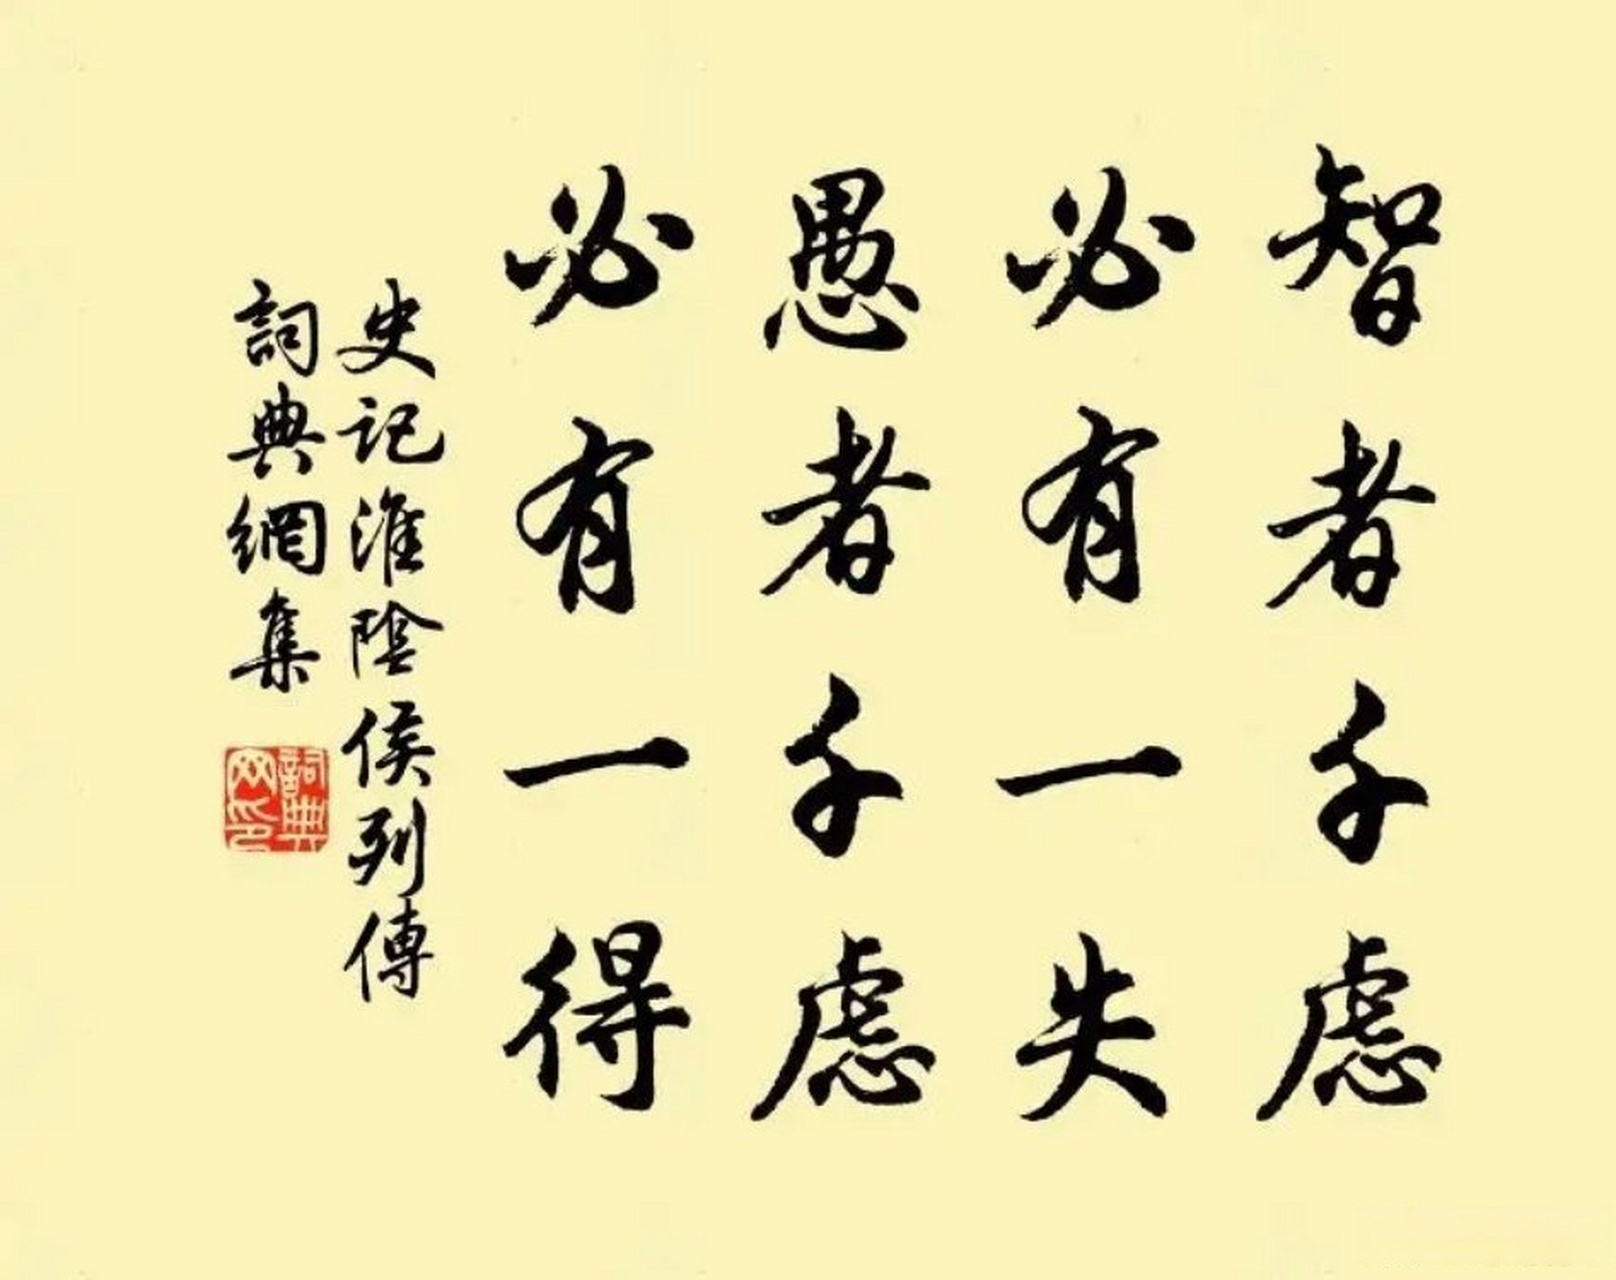 智者千虑
必有一失
愚者千虑
必有一得
史记淮陰侯列傳
詞典網集
詞典网印